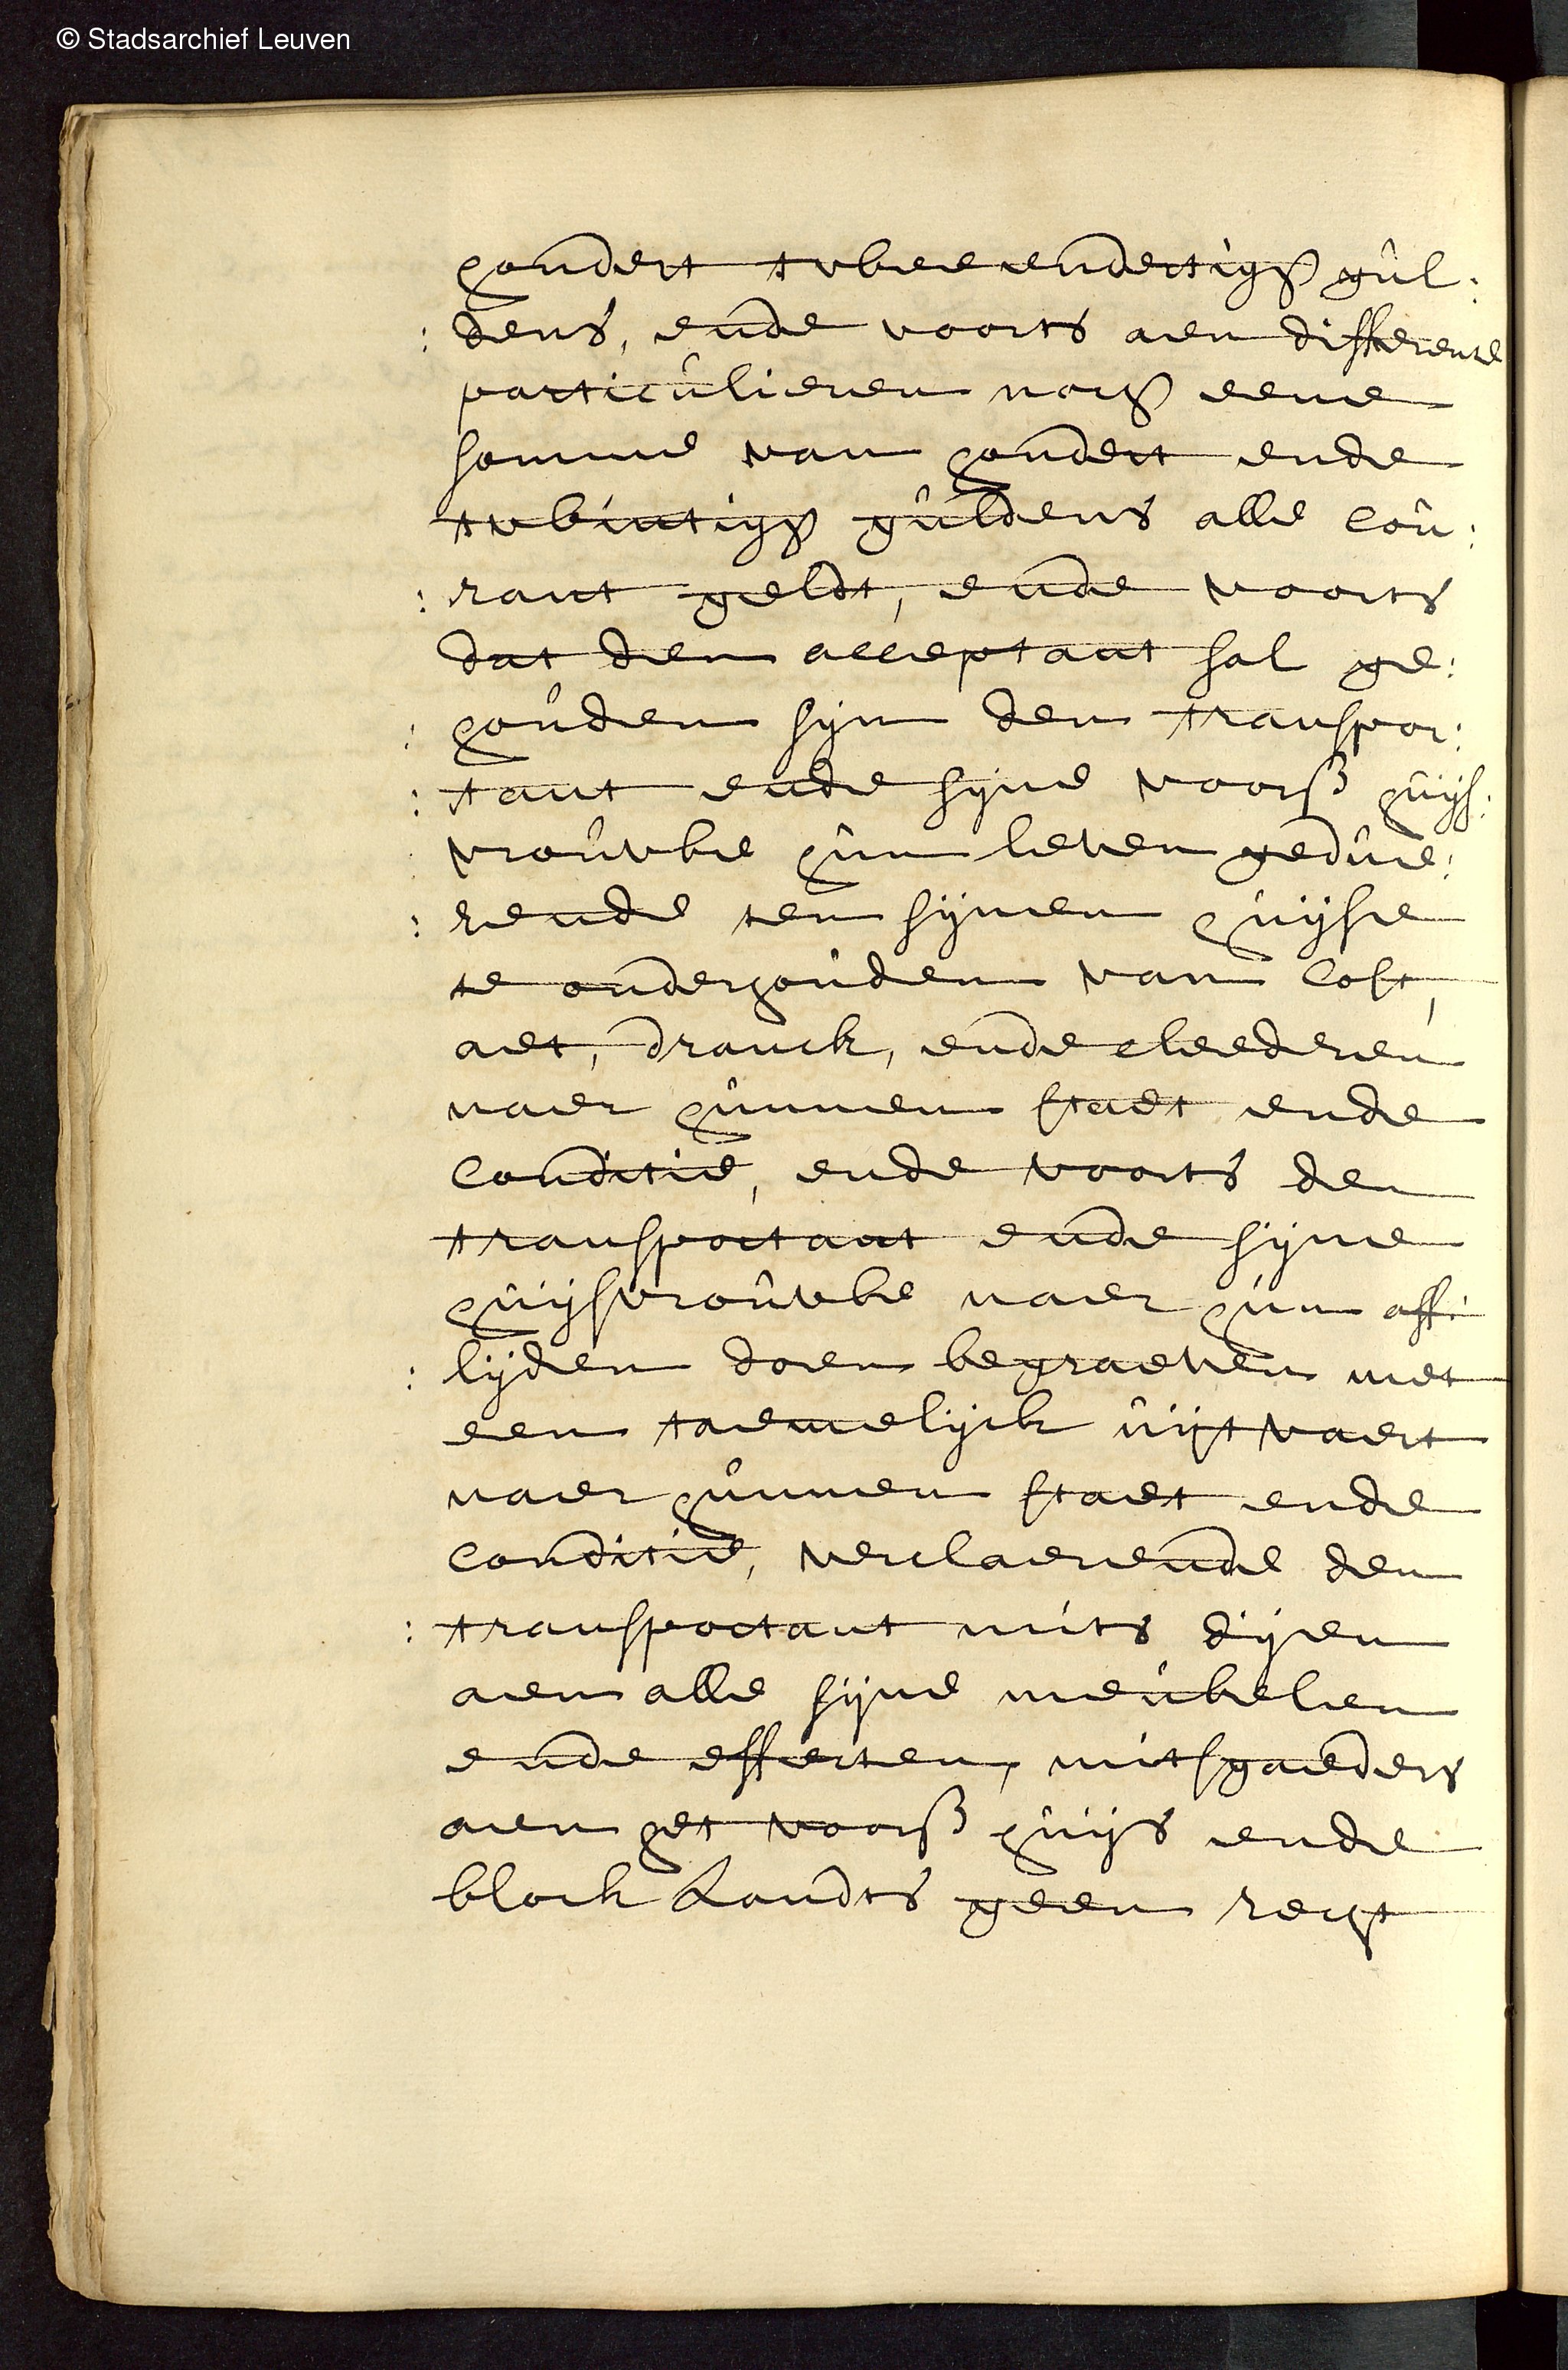 © Stadsarchief Leuven
hondert tweeendertigh gul:
: dens, ende voorts aen differente
particulieren noch eene
somme van hondert ende
twintigh guldens alle cou:
: rant geldt, ende voorts
dat den acceptant sal ge:
: houden sijn den transpor:
: tant ende sijne voorss huijs:
vrouwe hun leven gedue:
: rende ten sijnen huijse
te onderhouden van cost,
aet, dranck, ende cleederen
naer hunnen staet ende
conditie, ende voorts den
transportant ende sijne
huijsvrouwe naer hun aff:
: lijden doen begraeven met
een taemelijck uijtvaert
naer hunnen staet ende
conditie, verclaerende den
: transportant mits dijen
aen alle sijne meubelen
ende effecten, mitsgaeders
aen het voorss huijs ende
block Landts geen recht